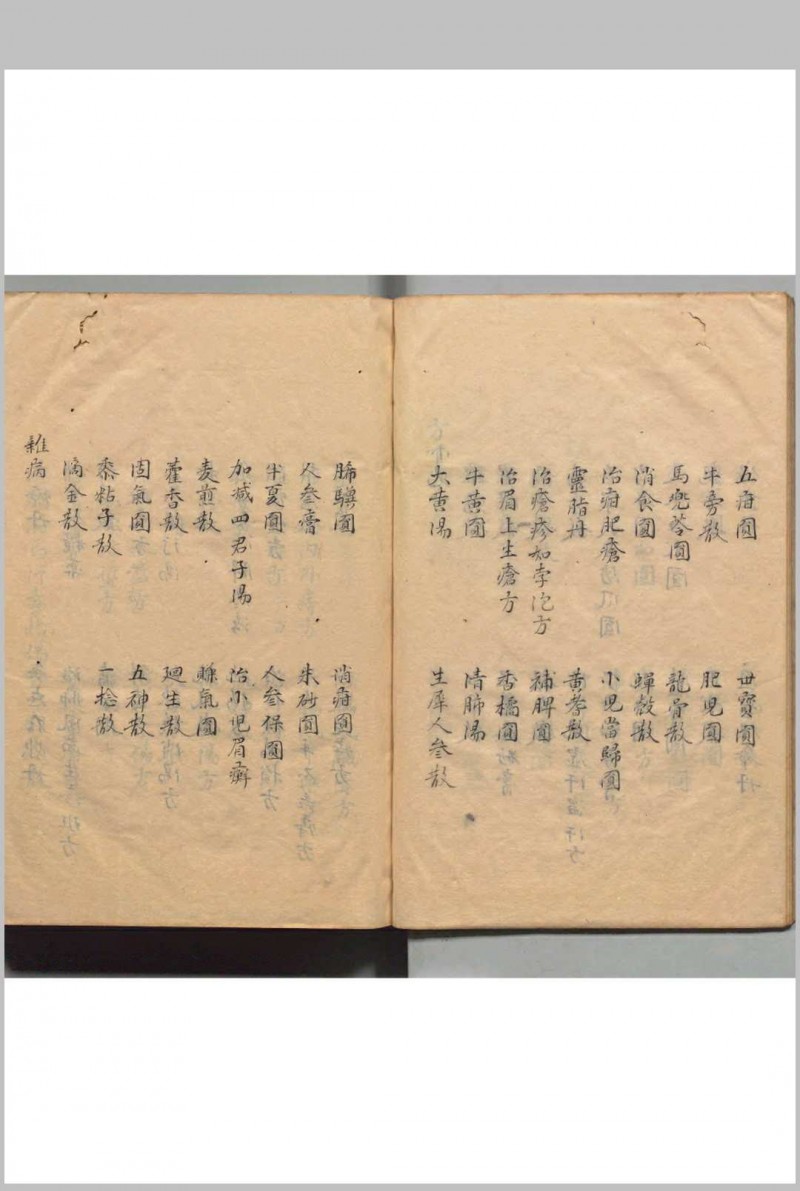 五疳圓 毋寳圓
牛旁散 肥児圓
馬兜苓圓 龍骨散
消食圓 蟬殻散
治疳肥瘡 小児當歸圓
靈脂丹 黄孝散
治瘡疹如李泡方 補脾圓
治眉上生瘡方 香橘圓
牛黄圓 清肺湯
大黄湯 生犀人参散
腸驥圓 消疳圓
人参膏 朱砂圓
半夏圓 人参保圓
加减四君子湯 治小児眉癬
麦煎散 氣圓
藿香散 廻生散
固氣圓 五神散
黍粘子散 一捻散
滴金散
雜病